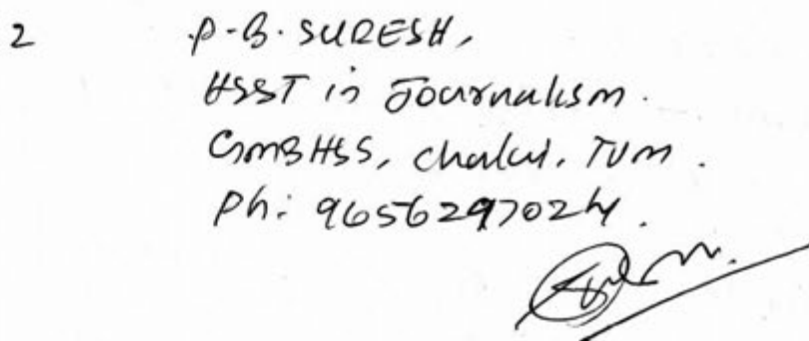 2 P-B. SURESH,
HSST in Journalism.
GMBHSS, Chalai, TVM.
Ph: 9656297024.